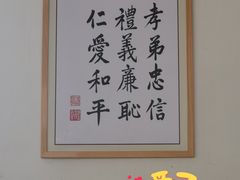 孝弟忠信
禮義廉恥
仁愛和平